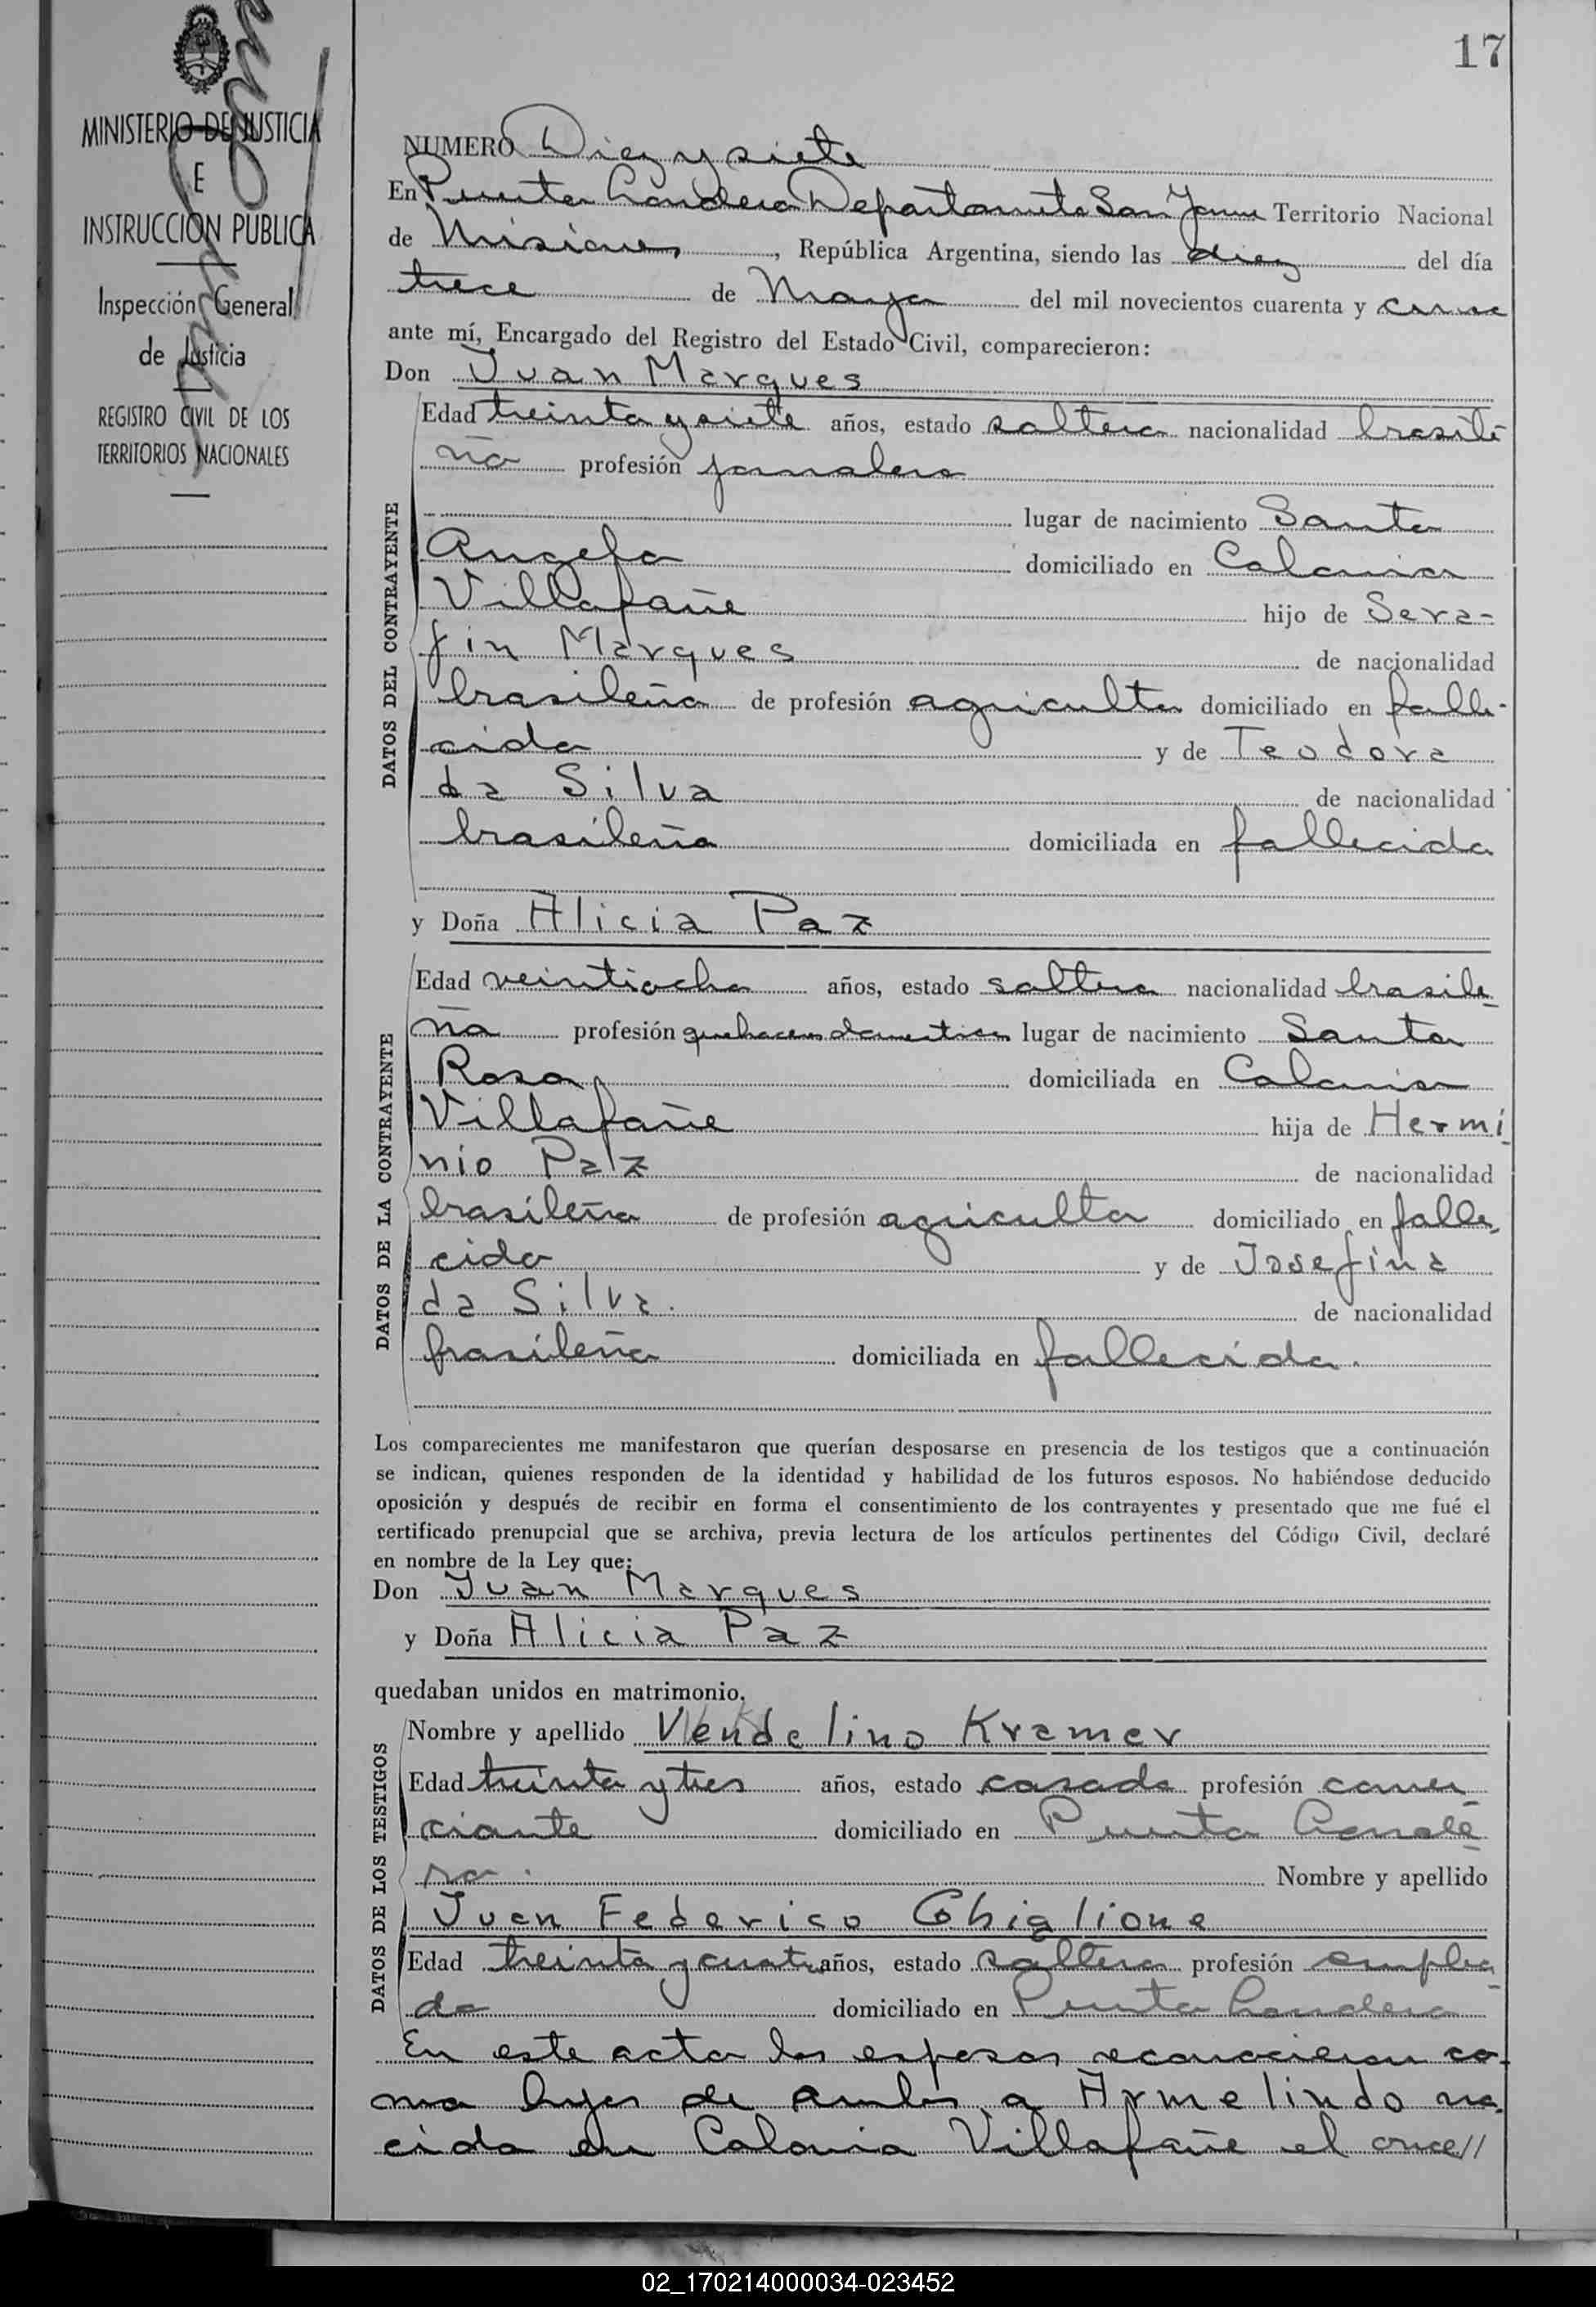 17
MINISTERIO DE JUSTICIA
E
INSTRUCCION PUBLICA
Inspección General
de Justicia
REGISTRO CIVIL DE LOS
TERRITORIOS NACIONALES
NUMERO Diez y siete
En Puerto Londero Departamento San Javier Territorio Nacional
de Misiones, República Argentina, siendo las diez del día
trece de Mayo del mil novecientos cuarenta y
ante mí, Encargado del Registro del Estado Civil, comparecieron:
Don Juan Marques
DATOS DEL CONTRAYENTE
Edad treinta y siete años, estado soltero nacionalidad brasile
ña profesión jornalero
lugar de nacimiento Santo
Angelo domiciliado en Colonia
Villafañe hijo de Sera-
fin Marques de nacionalidad
brasileña de profesión agricultor domiciliado en falle-
cido y de Teodora
da Silva de nacionalidad
brasileña domiciliada en fallecida
y Doña Alicia Paz
DATOS DE LA CONTRAYENTE
Edad veintiocho años, estado soltera nacionalidad brasile
ña profesión quehaceres domesticos lugar de nacimiento Santa
Rosa domiciliada en Colonia
Villafañe hija de Hermi
nio Paz de nacionalidad
brasileña de profesión agricultor domiciliado en falle
cido y de Josefina
da Silva. de nacionalidad
brasileña domiciliada en fallecida.
Los comparecientes me manifestaron que querían desposarse en presencia de los testigos que a continuación
se indican, quienes responden de la identidad y habilidad de los futuros esposos. No habiéndose deducido
oposición y después de recibir en forma el consentimiento de los contrayentes y presentado que me fué el
certificado prenupcial que se archiva, previa lectura de los artículos pertinentes del Código Civil, declaré
en nombre de la Ley que:
Don Juan Marques
y Doña Alicia Paz
quedaban unidos en matrimonio.
DATOS DE LOS TESTIGOS
Nombre y apellido Vendelino Kramer
Edad treinta y tres años, estado casado profesión comer
ciante domiciliado en Puerto Londe
ro. Nombre y apellido
Juan Federico Ghiglione
Edad treinta y cuatro años, estado soltero profesión emplea
do domiciliado en Puerto Londero
En este acto los esposos reconocieron co-
mo hijos de ambos a Armelindo na
cido en Colonia Villafañe el once//
02_170214000034-023452